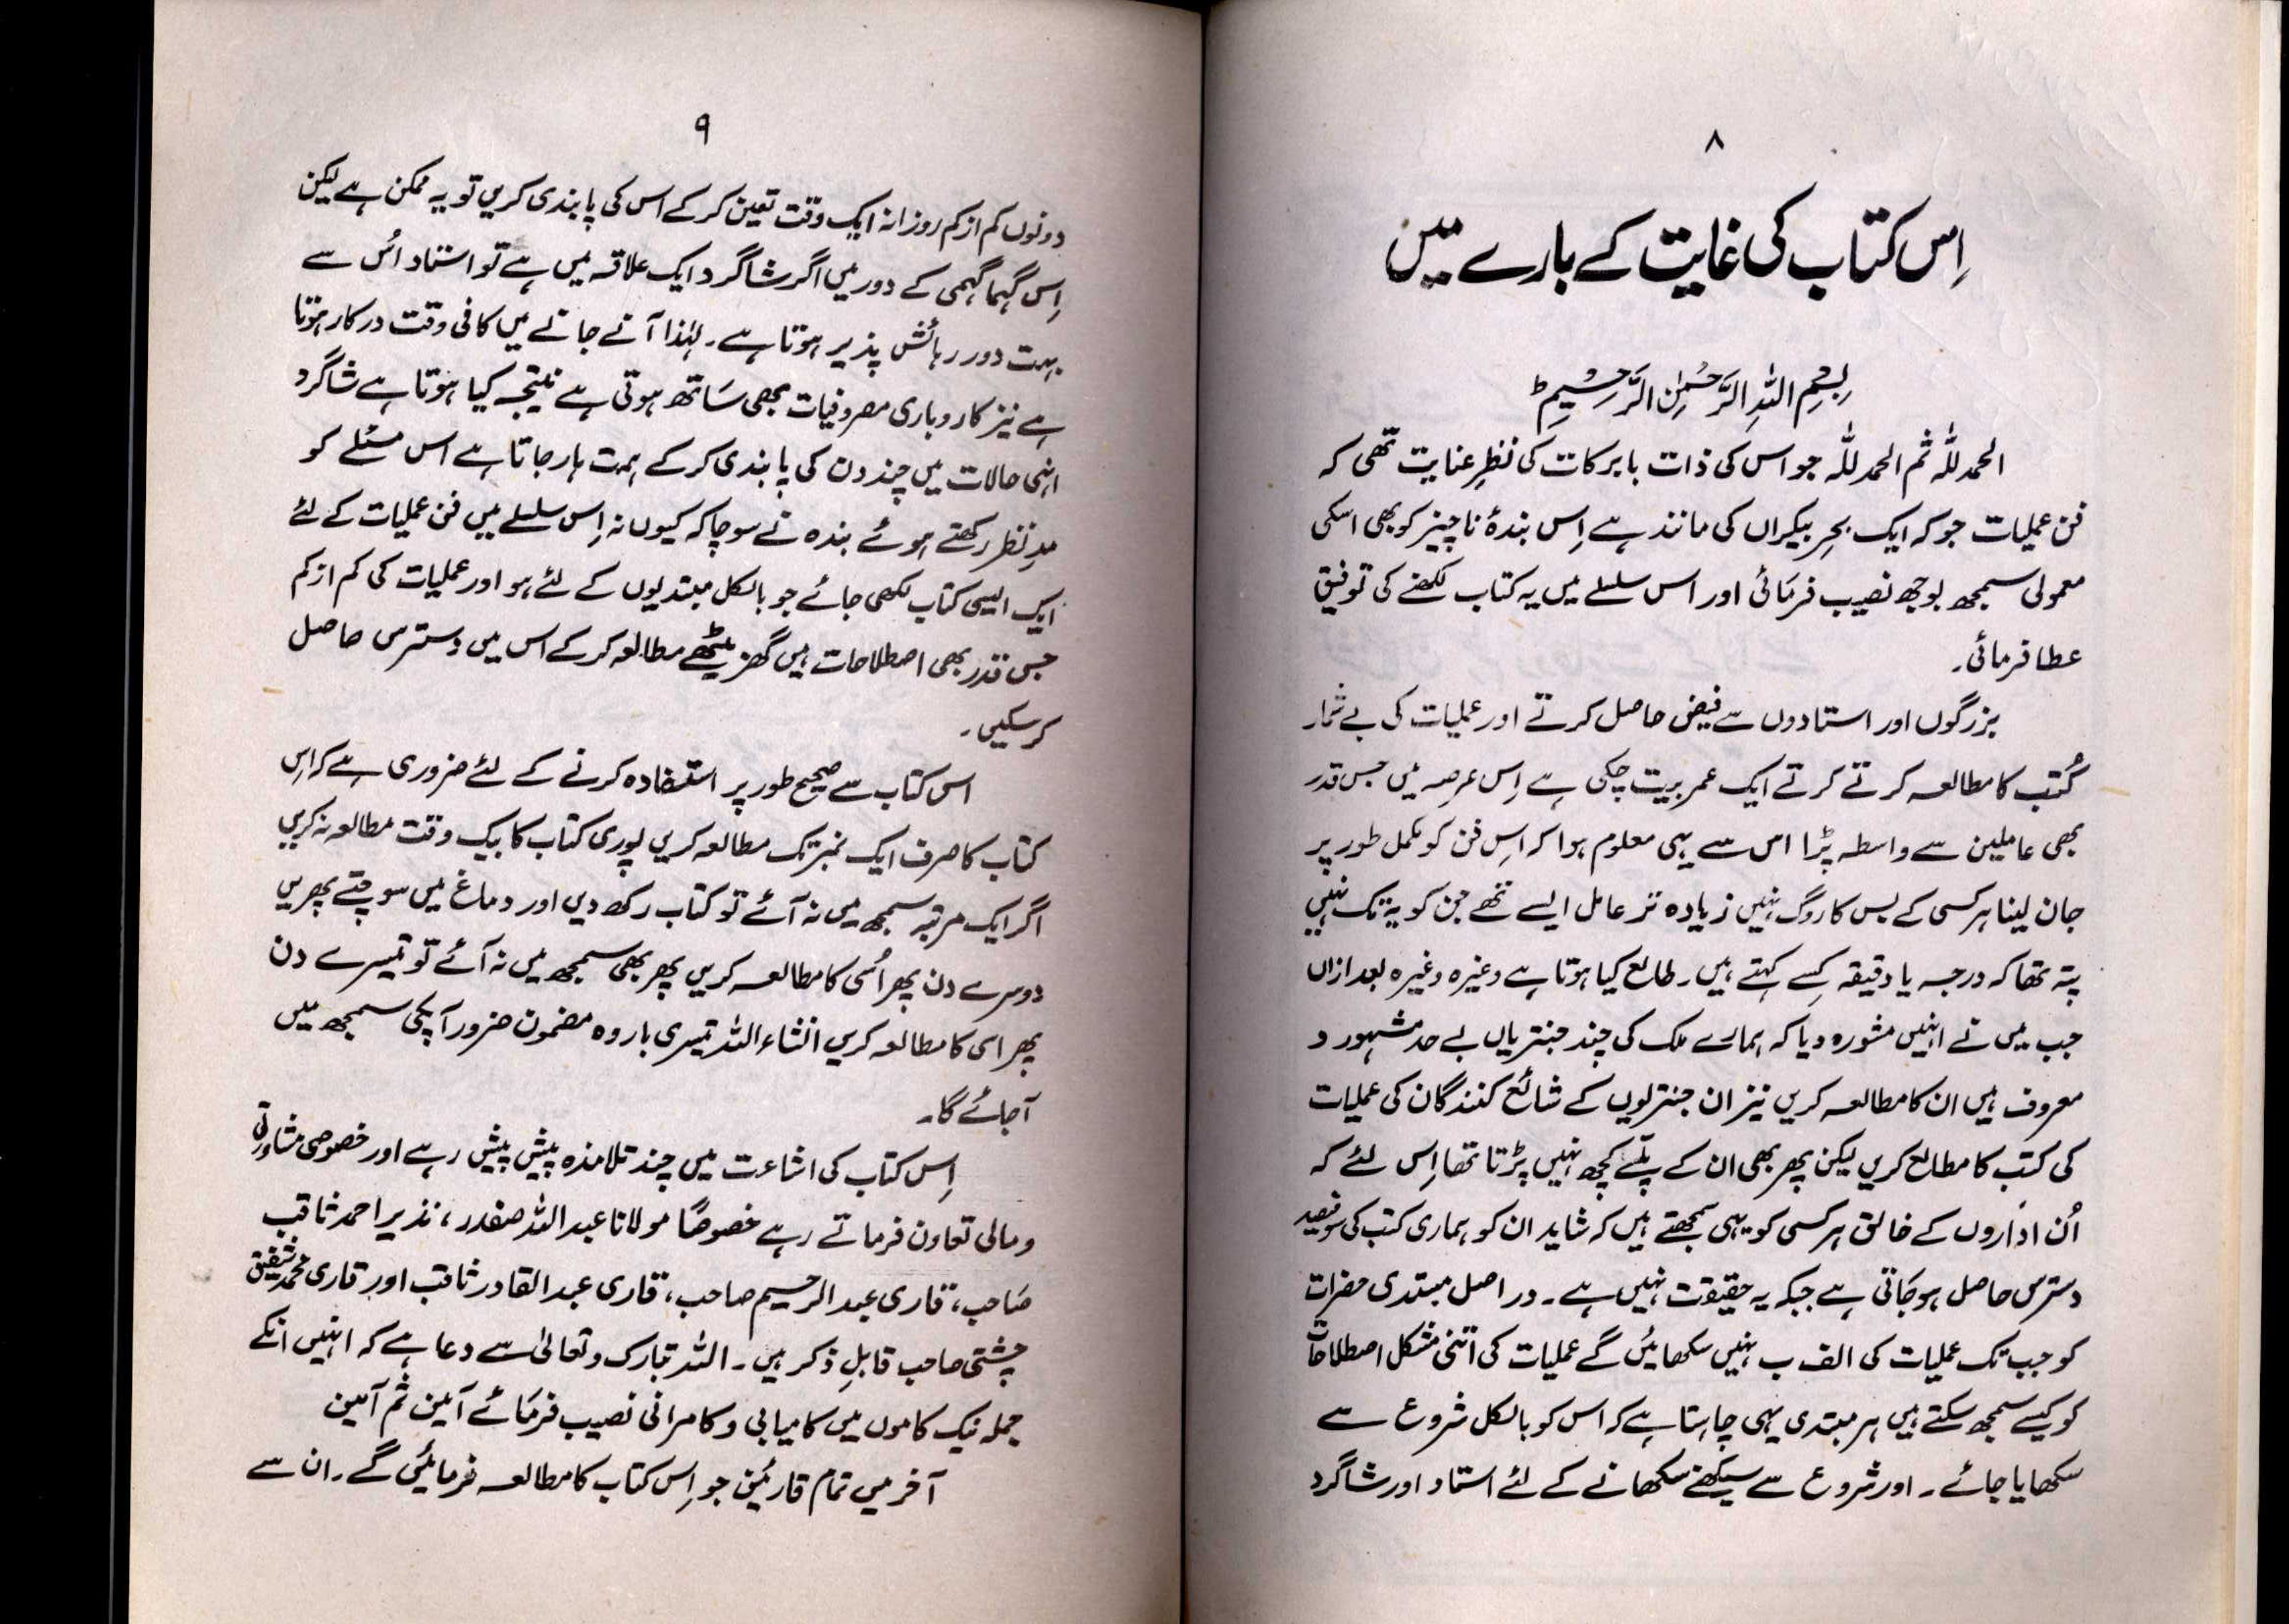 ۸
اِس کتاب کی غایت کے بارے میں
بِسْمِ اللہِ الرَّحْمٰنِ الرَّحِیْمِ ط
الحمد للّٰہ ثم الحمد للّٰہ جو اس کی ذات بابرکات کی نظرِ عنایت تھی کہ
فن عملیات جو کہ ایک بحرِ بیکراں کی مانند ہے اِس بندۂ ناچیز کو بھی اسکی
معمولی سمجھ بوجھ نصیب فرمائی اور اس سلسلے میں یہ کتاب لکھنے کی توفیق
عطا فرمائی۔
بزرگوں اور استادوں سے فیض حاصل کرتے اور عملیات کی بے شمار
کُتب کا مطالعہ کرتے کرتے ایک عمر بیت چکی ہے اِس عرصہ میں جس قدر
بھی عاملین سے واسطہ پڑا اس سے یہی معلوم ہوا کہ اِس فن کو مکمل طور پر
جان لینا ہر کسی کے بس کا روگ نہیں زیادہ تر عامل ایسے تھے جن کو یہ تک نہیں
پتہ تھا کہ درجہ یا دقیقہ کِسے کہتے ہیں۔ طالع کیا ہوتا ہے وغیرہ وغیرہ بعد ازاں
جب میں نے انہیں مشورہ دیا کہ ہمارے ملک کی چند جنتریاں بے حد مشہور و
معروف ہیں ان کا مطالعہ کریں نیز ان جنتریوں کے شائع کنندگان کی عملیات
کی کتب کا مطالع کریں لیکن پھر بھی ان کے پلّے کچھ نہیں پڑتا تھا اِس لئے کہ
اُن اداروں کے خالق ہر کسی کو یہی سمجھتے ہیں کہ شاید ان کو ہماری کتب کی سو فیصد
دسترس حاصل ہو جاتی ہے جبکہ یہ حقیقت نہیں ہے۔ در اصل مبتدی حضرات
کو جب تک عملیات کی الف ب نہیں سکھائیں گے عملیات کی اتنی مشکل اصطلاحات
کو کیسے سمجھ سکتے ہیں ہر مبتدی یہی چاہتا ہے کہ اس کو بالکل شروع سے
سکھایا جائے۔ اور شروع سے سیکھنے سکھانے کے لئے استاد اور شاگرد
۹
دونوں کم از کم روزانہ ایک وقت تعین کر کے اس کی پابندی کریں تو یہ ممکن ہے لیکن
اِس گہما گہمی کے دور میں اگر شاگرد ایک علاقہ میں ہے تو استاد اُس سے
بہت دور رہائش پذیر ہوتا ہے۔ لہٰذا آنے جانے میں کافی وقت درکار ہوتا
ہے نیز کاروباری مصروفیات بھی ساتھ ہوتی ہے نتیجہ کیا ہوتا ہے شاگرد
انہی حالات میں چند دن کی پابندی کر کے ہمت ہار جاتا ہے اس مسئلے کو
مدِنظر رکھتے ہوئے بندہ نے سوچا کہ کیوں نہ اِس سلسلے میں فن عملیات کے لئے
ایک ایسی کتاب لکھی جائے جو بالکل مبتدیوں کے لئے ہو اور عملیات کی کم از کم
جس قدر بھی اصطلاحات ہیں گھر بیٹھے مطالعہ کر کے اس میں دسترس حاصل
کر سکیں۔
اس کتاب سے صحیح طور پر استفادہ کرنے کے لئے ضروری ہے کہ اِس
کتاب کا صرف ایک نمبر تک مطالعہ کریں پوری کتاب کا بیک وقت مطالعہ نہ کریں
اگر ایک مرتبہ سمجھ میں نہ آئے تو کتاب رکھ دیں اور دماغ میں سوچتے پھریں
دوسرے دن پھر اُسی کا مطالعہ کریں پھر بھی سمجھ میں نہ آئے تو تیسرے دن
پھر اسی کا مطالعہ کریں انشاء اللہ تیسری بار وہ مضمون ضرور آپکی سمجھ میں
آ جائے گا۔
اِس کتاب کی اشاعت میں چند تلامذہ پیش پیش رہے اور خصوصی مشاورتی
و مالی تعاون فرماتے رہے خصوصاً مولانا عبد اللہ صفدر، نذیر احمد ثاقب
صاحب، قاری عبد الرحیم صاحب، قاری عبد القادر ثاقب اور قاری محمد شفیق
چشتی صاحب قابلِ ذکر ہیں۔ اللہ تبارک وتعالیٰ سے دعا ہے کہ انہیں انکے
جملہ نیک کاموں میں کامیابی و کامرانی نصیب فرمائے آمین ثم آمین
آخر میں تمام قارئین جو اِس کتاب کا مطالعہ فرمائیں گے۔ ان سے